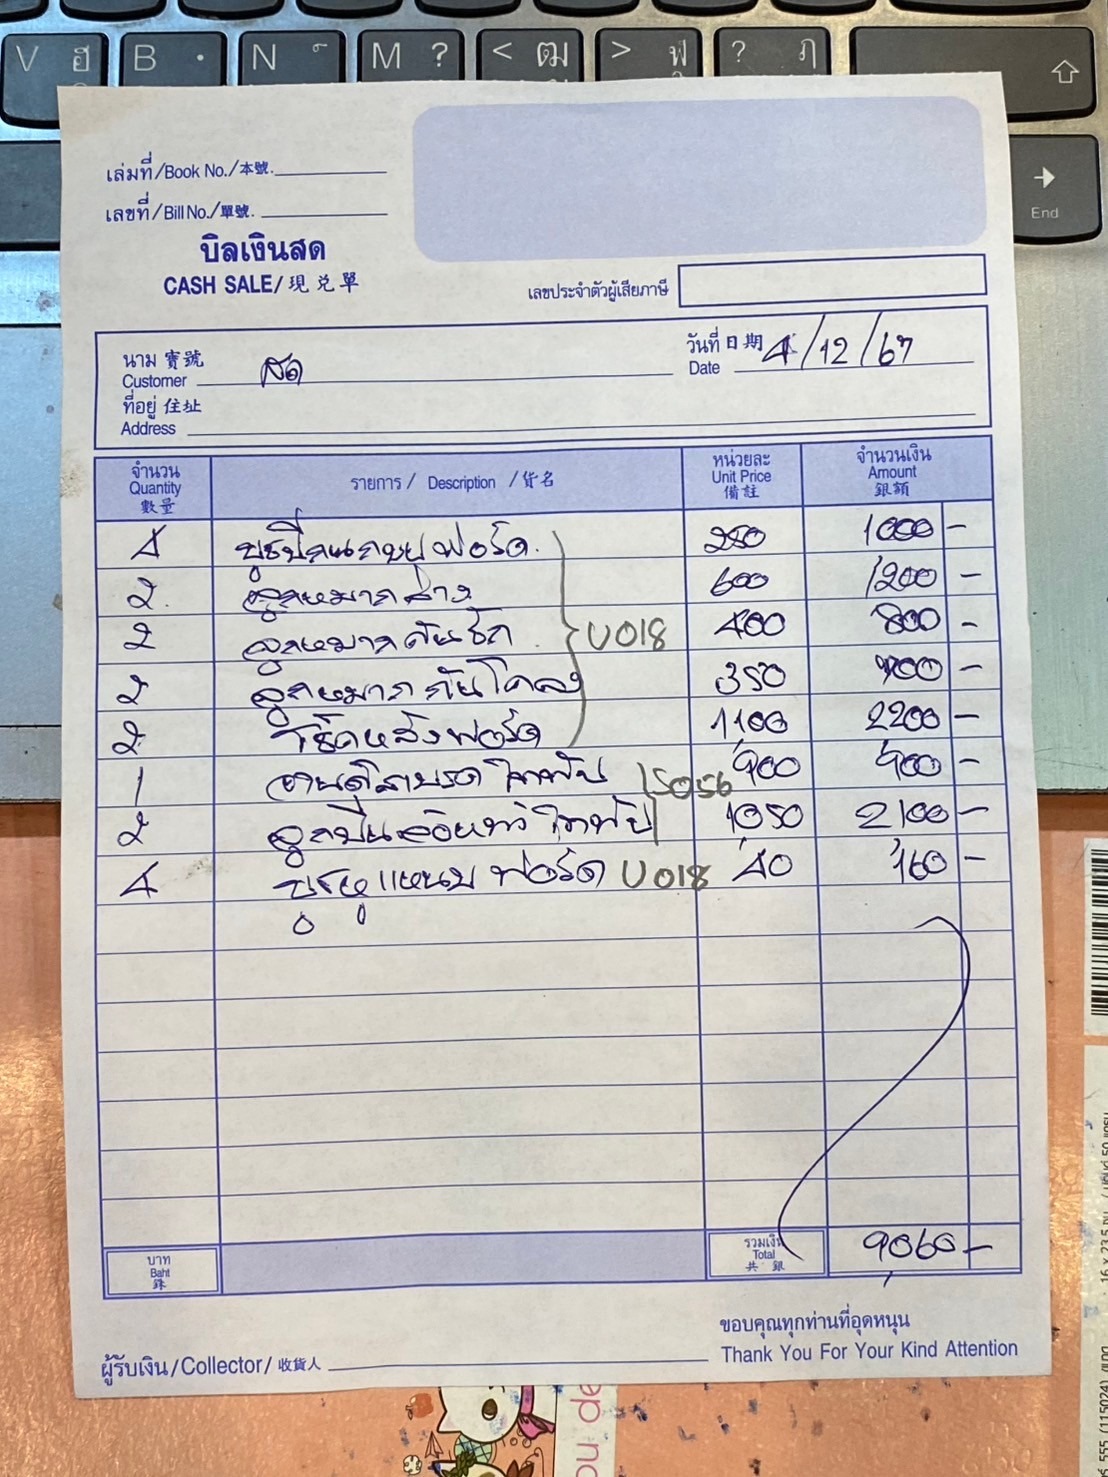 V ฮ B . N ์ M ? < ฒ > ฬ ? ฦ
End
เล่มที่/Book No./本號.
เลขที่/Bill No./單號.
บิลเงินสด
CASH SALE/現兑單
เลขประจำตัวผู้เสียภาษี
นาม 寶號
Customer สด
วันที่ 日期 4/12/67
Date
ที่อยู่ 住址
Address
จำนวน Quantity 數量 รายการ / Description / 貨名 หน่วยละ Unit Price 備註 จำนวนเงิน Amount 銀額
4 บูชปีกนกบน ฟอร์ด 250 1000 -
2 ลูกหมากล่าง 600 1200 -
2 ลูกหมากคันชัก U018 400 800 -
2 ลูกหมากกันโคลง 350 700 -
2 โช๊คหลังฟอร์ด 1100 2200 -
1 900 900 -
S056
2 ลูกปืน 1050 2100 -
4 บูชหูแหนบ ฟอร์ด U018 40 160 -
บาท Baht 銖 รวมเงิน Total 共銀 9060 -
ขอบคุณทุกท่านที่อุดหนุน
ผู้รับเงิน/Collector/收貨人 Thank You For Your Kind Attention